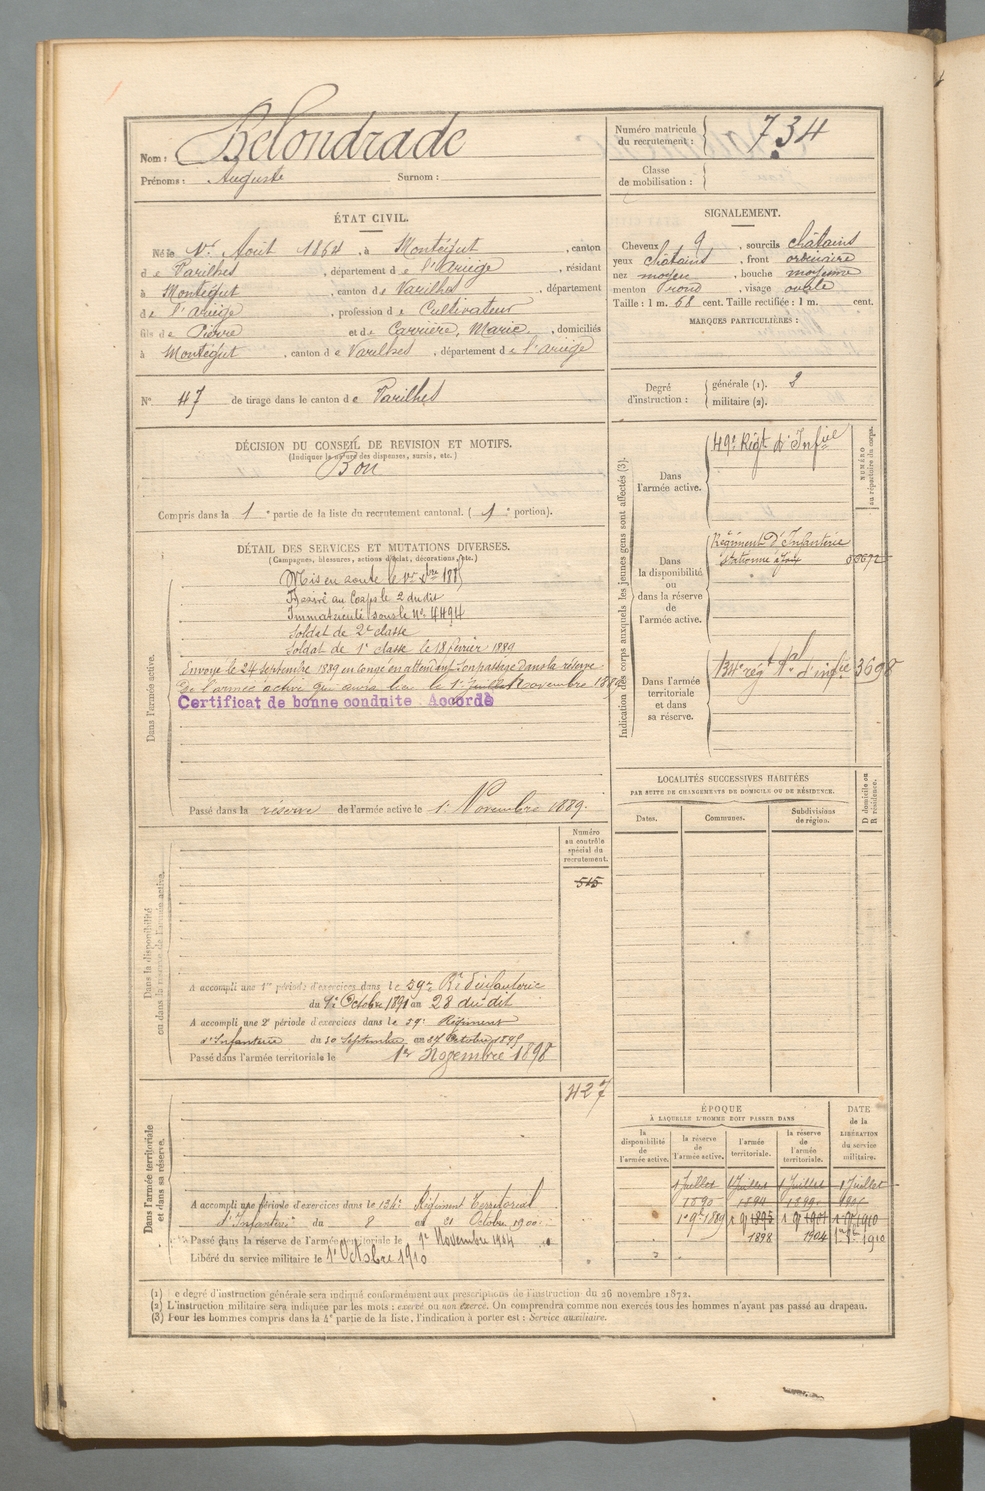 Nom : Delondrade
Prénoms : Auguste Surnom :
Numéro matricule du recrutement : 734
Classe de mobilisation :
ÉTAT CIVIL.
Né le 1er Août 1864, à Montégut, canton
de Varilhes, département de l'Ariège, résidant
à Montégut, canton de Varilhes, département
de l'Ariège, profession de Cultivateur
fils de Pierre et de Carrière, Marie, domiciliés
à Montégut, canton de Varilhes, département de l'Ariège
SIGNALEMENT.
Cheveux, sourcils châtains
yeux châtains, front ordinaire
nez moyen, bouche moyenne
menton rond, visage ovale
Taille : 1 m. 68 cent. Taille rectifiée : 1 m. cent.
MARQUES PARTICULIÈRES :
N° 47 de tirage dans le canton de Varilhes
Degré d'instruction : générale (1). 2
militaire (2).
DÉCISION DU CONSEIL DE REVISION ET MOTIFS.
(Indiquer la nature des dispenses, sursis, etc.)
Bon
Compris dans la 1e partie de la liste du recrutement cantonal. (1e portion).
DÉTAIL DES SERVICES ET MUTATIONS DIVERSES.
(Campagnes, blessures, actions d'éclat, décorations, etc.)
Dans l'armée active.
Mis en route le 1er Xbre 188
au Corps le 2 dudit
Immatriculé sous le N° 4494
Soldat de 2e classe
Soldat de 1e classe le 18 février 1889
Envoyé le 24 septembre 1889 en congé en attendant son passage dans la réserve
de l'armée active qui aura lieu le 1er Juillet Novembre
Certificat de bonne conduite : Accordé
Passé dans la réserve de l'armée active le 1er Novembre 1889.
Indication des corps auxquels les jeunes gens sont affectés (3).
NUMÉRO au répertoire du corps.
Dans l'armée active.
49e Régt d'Infie
Dans la disponibilité ou dans la réserve de l'armée active.
Régiment d'Infanterie
stationné à Foix
Dans l'armée territoriale et dans sa réserve.
134e régt tal d'infie 3698
LOCALITÉS SUCCESSIVES HABITÉES
PAR SUITE DE CHANGEMENTS DE DOMICILE OU DE RÉSIDENCE.
D domicile ou R résidence.
Dates. Communes. Subdivisions de région.
Dans la disponibilité ou dans la réserve de l'armée active.
Numéro au contrôle spécial du recrutement.
515
A accompli une 1re période d'exercices dans le 59e Rt d'infanterie
du 1er Octobre 1891 au 28 dudit
A accompli une 2e période d'exercices dans le 59e Régiment
d'Infanterie du 30 Septembre au 27 Octobre 1895
Passé dans l'armée territoriale le 1er Novembre 1898
Dans l'armée territoriale et dans sa réserve.
427
A accompli une période d'exercices dans le 134e Régiment Territorial
d'Infanterie du 8 au 21 Octobre 1900
Passé dans la réserve de l'armée territoriale le 1er Novembre 1904
Libéré du service militaire le 1er Octobre 1910
ÉPOQUE
À LAQUELLE L'HOMME DOIT PASSER DANS
la disponibilité de l'armée active.
la réserve de l'armée active.
l'armée territoriale.
la réserve de l'armée territoriale.
DATE de la LIBÉRATION du service militaire.
1 Juillet 1 Juillet 1 Juillet 1 Juillet
1890 1899
1er 9bre 1889 1 9 1895 1 9 1901 1910
1898 1904 1910
(1) Le degré d'instruction générale sera indiqué conformément aux prescriptions de l'instruction du 26 novembre 1872.
(2) L'instruction militaire sera indiquée par les mots : exercé ou non exercé. On comprendra comme non exercés tous les hommes n'ayant pas passé au drapeau.
(3) Pour les hommes compris dans la 4e partie de la liste, l'indication à porter est : Service auxiliaire.